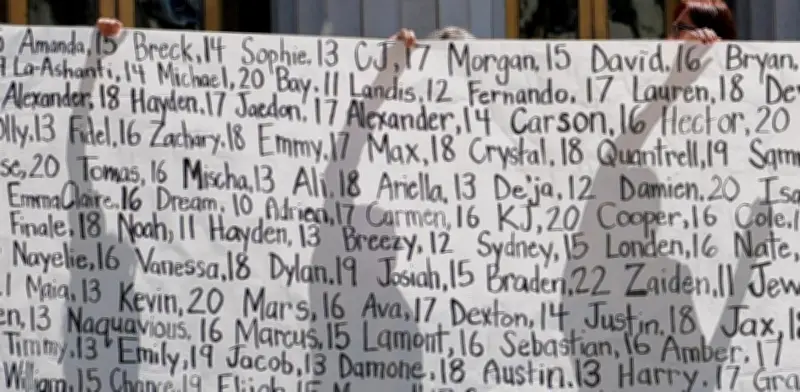 Amanda, 15 Breck, 14 Sophie, 13 CJ, 17 Morgan, 15 David, 16 Bryan,
La-Ashanti, 14 Michael, 20 Bay, 11 Landis, 12 Fernando, 17 Lauren, 18
Alexander, 18 Hayden, 17 Jaedon, 17 Alexander, 14 Carson, 16 Hector, 20
olly, 13 Fidel, 16 Zachary, 18 Emmy, 17 Max, 18 Crystal, 18 Quantrell, 19
se, 20 Tomas, 16 Mischa, 13 Ali, 18 Ariella, 13 De'ja, 12 Damien, 20 Isa
EmmaClaire, 16 Dream, 10 Adrien, 17 Carmen, 16 KJ, 20 Cooper, 16 Cole,
Finale, 18 Noah, 11 Hayden, 13 Breezy, 12 Sydney, 15 Londen, 16 Nate,
Nayelie, 16 Vanessa, 18 Dylan, 19 Josiah, 15 Braden, 22 Zaiden, 11 Jew
Maia, 13 Kevin, 20 Mars, 16 Ava, 17 Dexton, 14 Justin, 18 Jax,
en, 13 Naquavious, 16 Marcus, 15 Lamont, 16 Sebastian, 16 Amber, 17
Timmy, 13 Emily, 19 Jacob, 13 Damone, 18 Austin, 13 Harry, 17 Gra
William, 15 Chance, 19 Elijah, 15